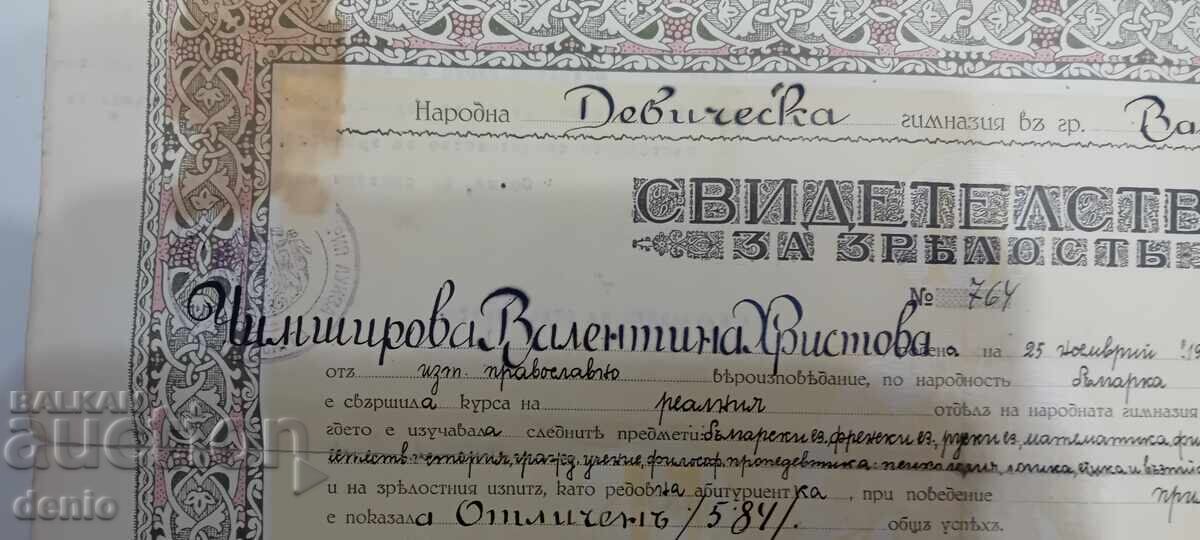 Народна Девическа гимназия въ гр. Ва
СВИДЕТЕЛСТВ
ЗА ЗРѢЛОСТЬ
№ 764
Чимширова Валентина Христова родена на 25 ноемврий 19
отъ изт. православно вѣроизповѣдание, по народность българка
е свършила курса на реалния отдѣлъ на народната гимназия
гдето е изучавала следнитѣ предмети: български ез., френски ез., руски ез., математика, фи
естеств. история, гражд. учение, философ. пропедевтика: психология, логика, етика и
и на зрѣлостния изпитъ, като редовна абитуриентка, при поведение при
е показала Отличенъ /5 84/. общъ успѣхъ.
BALKAN
auction
denio